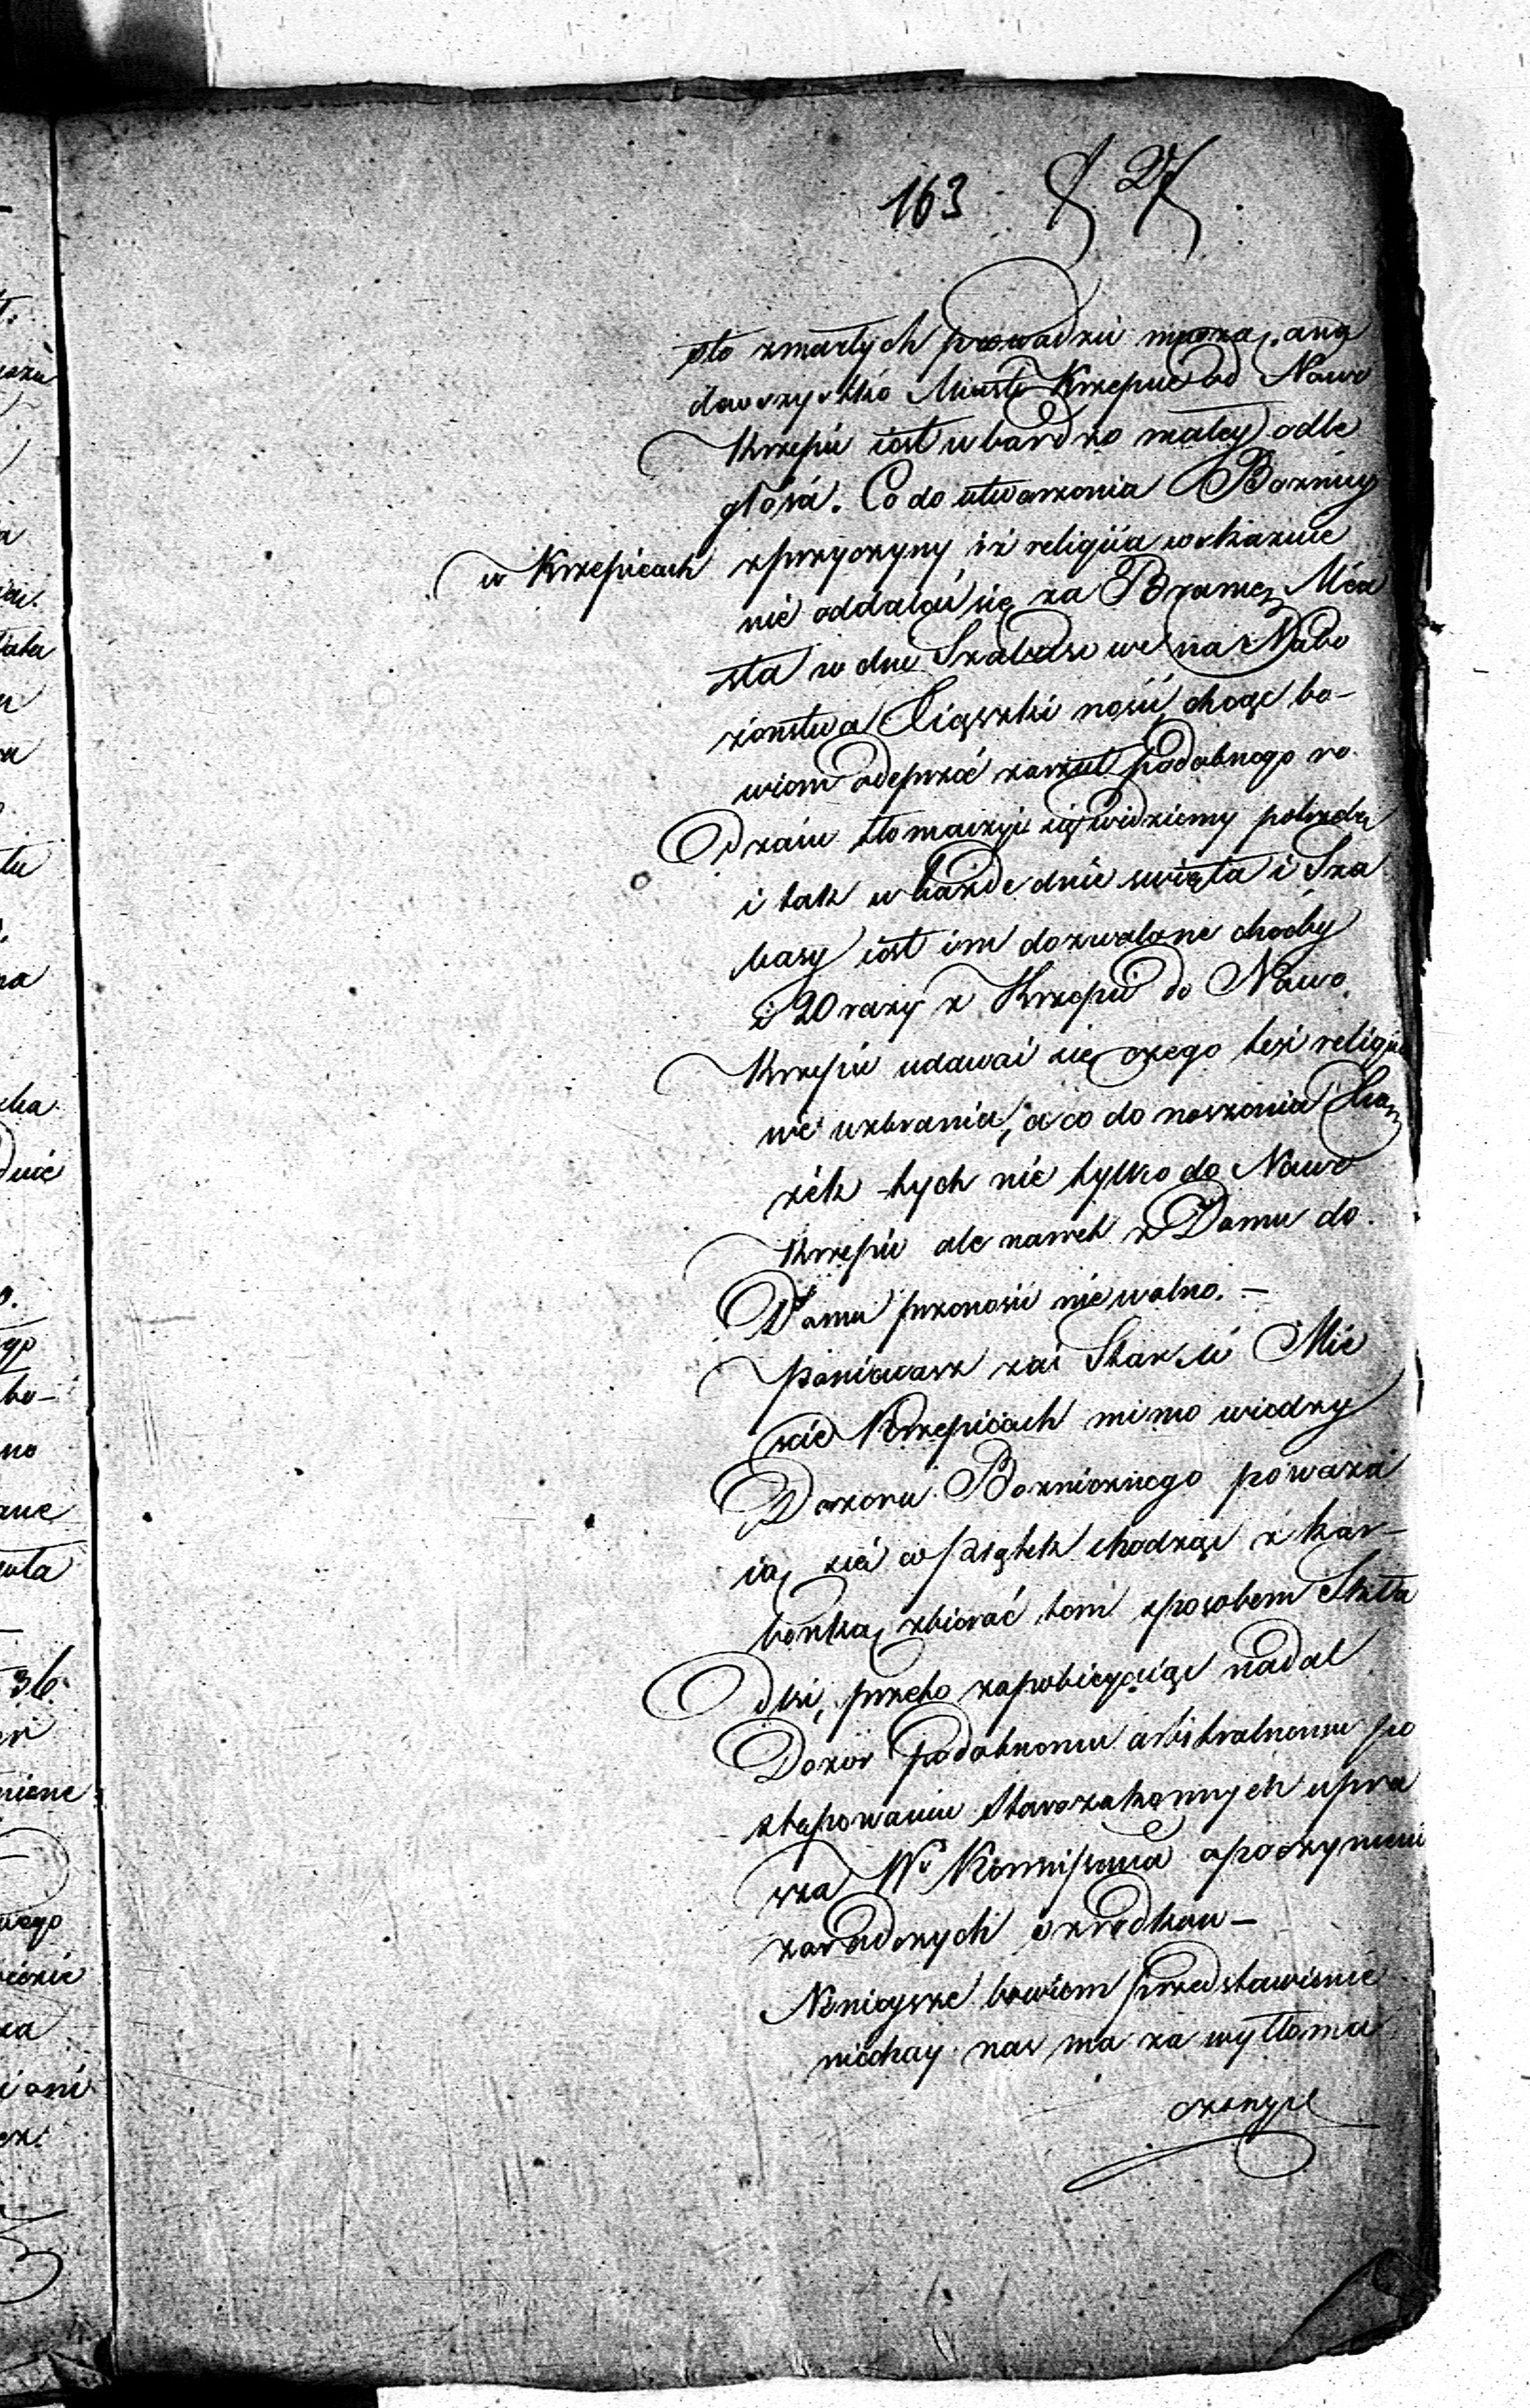 163 27
sto zmarłych prowadzić muszą, a na
dowszystko Miasto Krzepice od Nowo
Krzepic iest w bardzo małey odle
głości. Co do utworzenia Bożnicy
w Krzepicach z przyczyny iż religiia wskazuie
nie oddalać się za Bramę Mia
sta w dnie Szabasowe na Nabo
żenstwa Ciążki nosić chcąc bo-
wiem odeprzeć zarzut podobnego ro
dzaiu tłomaczyć się widziemy potrzebę
i tak w każde dnie swięta i Sza
basy iest im dozwolone choćby
i 20 razy z Krzepic do Nowo
Krzepic udawać się czego też religiia
nie wzbrania, a co do noszenia Ksią
żek tych nie tylko do Nowo
Krzepic ale nawet z Domu do
Domu przenosić nie wolno. —
Ponieważ zaś Starsi Mie
scie Krzepicach mimo wiedzy
Dozoru Bożnicznego poważa
ią sie w piątek chodząc z kar-
bonką zbierać tem sposobem Skła
dki, przeto zapobiegaiąc nadal
Dozór podobnemu arbitralnemu po
stępowaniu Starozakonnych upra
sza W. Kommissarza o poczynieni
zaradczych srzodkow —
Ninieysze bowiem przedstawienie
niechay nas ma za wytłoma
czonych